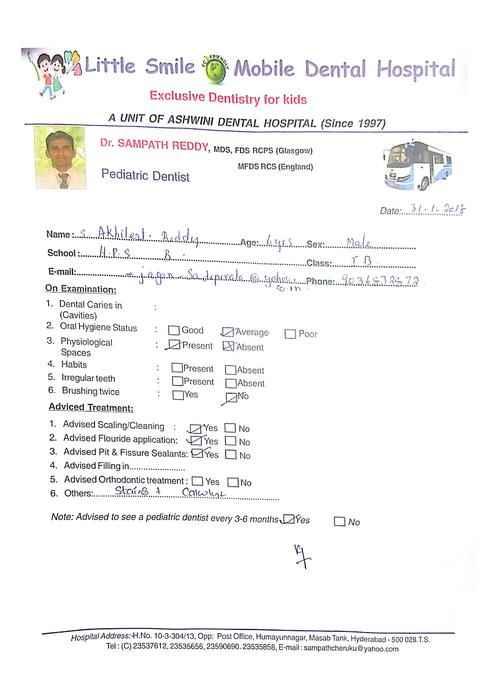 Little Smile Mobile Dental Hospital
Exclusive Dentistry for kids
A UNIT OF ASHWINI DENTAL HOSPITAL (Since 1997)
Dr. SAMPATH REDDY, MDS, FDS RCPS (Glasgow)
MFDS RCS (England)
Pediatric Dentist
Date: 31-1-2017
Name: S. Akhilesh Reddy Age: 6yrs Sex: Male
School: H.P.S B Class: I B
E-mail: Phone:
On Examination:
1. Dental Caries in (Cavities) :
2. Oral Hygiene Status : Good Average Poor
3. Physiological Spaces : Present Absent
4. Habits : Present Absent
5. Irregular teeth : Present Absent
6. Brushing twice : Yes No
Adviced Treatment:
1. Advised Scaling/Cleaning : Yes No
2. Advised Flouride application: Yes No
3. Advised Pit & Fissure Sealants: Yes No
4. Advised Filling in
5. Advised Orthodontic treatment : Yes No
6. Others: Stains &
Note: Advised to see a pediatric dentist every 3-6 months Yes No
Hospital Address:-H.No. 10-3-304/13, Opp: Post Office, Humayunnagar, Masab Tank, Hyderabad - 500 028.T.S.
Tel : (C) 23537612, 23535656, 23590690. 23535858, E-mail : sampathcheruku@yahoo.com